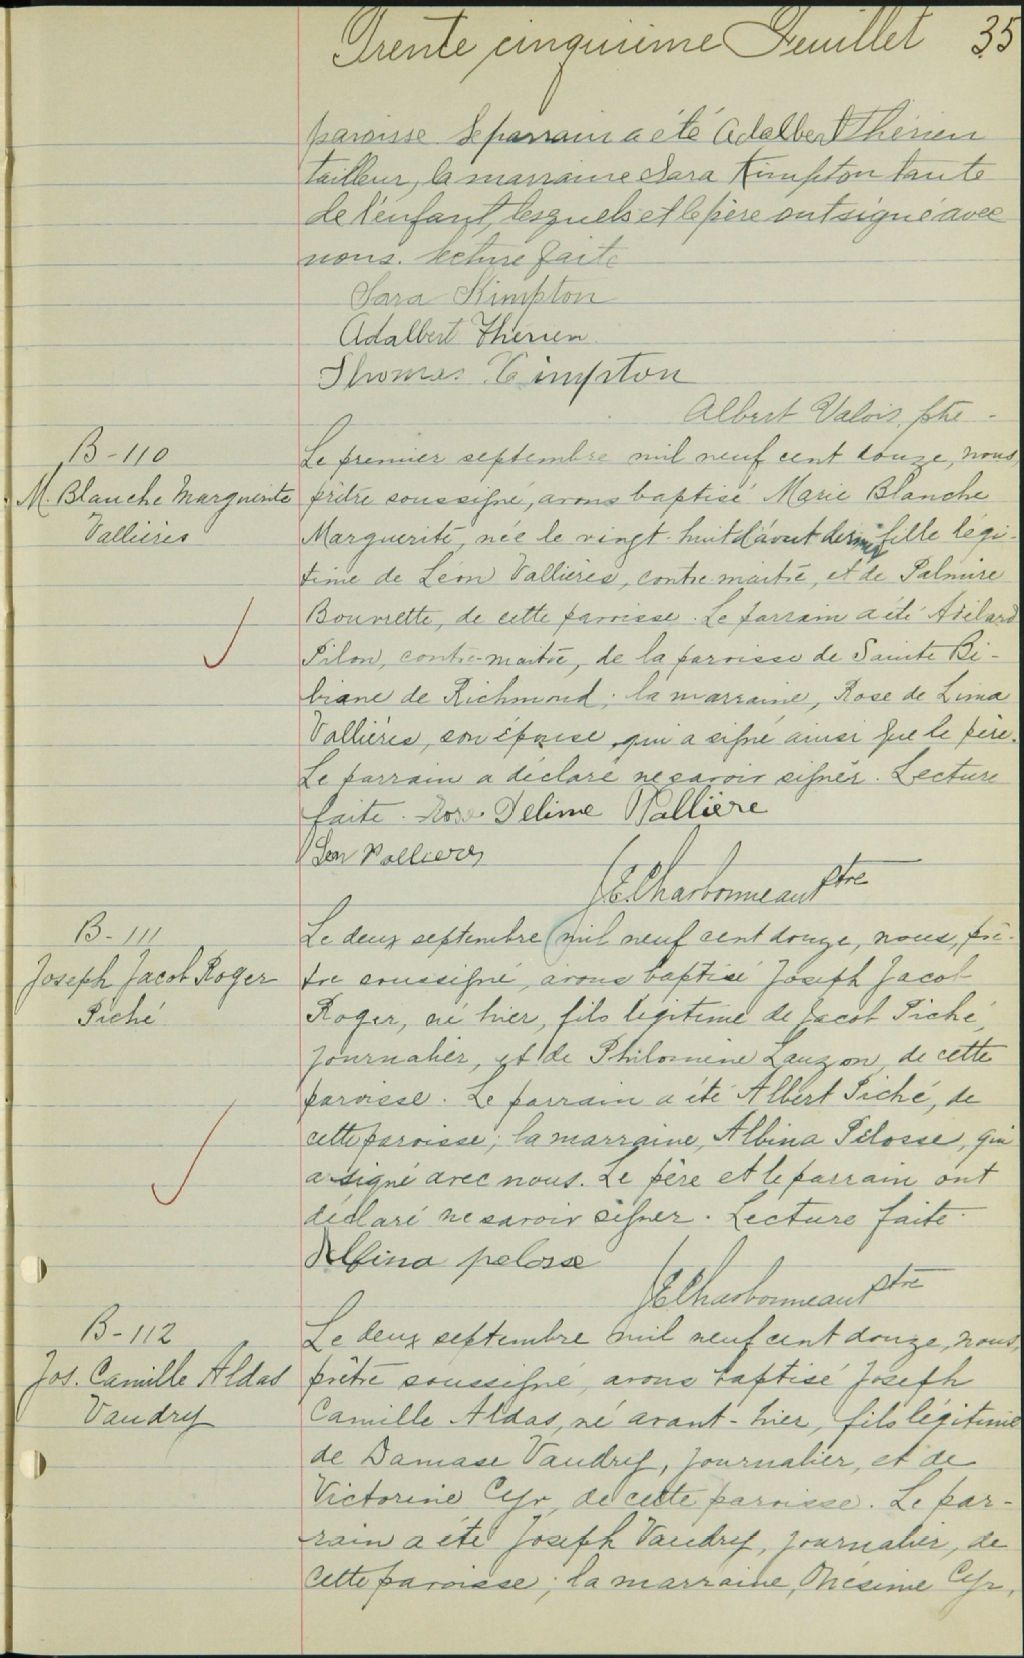 Trente cinquième Feuillet 35
paroisse Le parrain a été Adalbert Thérien
tailleur, la marraine Sara Kimpton tante
de l'enfant, lesquels et le père ont signé avec
nous. lecture faite
Sara Kimpton
Adalbert Therien
Thomas Kimpton
Albert Valois, ptre -
B-110
M. Blanche Marguerite
Vallières
Le premier septembre mil neuf cent douze, nous,
prêtre soussigné, avons baptisé Marie Blanche
Marguerite, née le vingt-huit d'aout dernier fille légi-
time de Léon Vallières, contre-maitre, et de Palmire
Bourrette, de cette paroisse. Le parrain a été Adélard
Pilon, contre-maitre, de la paroisse de Sainte Bi-
biane de Richmond; la marraine, Rose de Lima
Vallières, son épouse, qui a signé ainsi que le père.
Le parrain a déclaré ne savoir signer. Lecture
faite. Rose Delime Vallière
Leon Vallieres
J.E. Charbonneau ptre
B-111
Joseph Jacob Roger
Piché
Le deux septembre mil neuf cent douze, nous, prê-
tre soussigné, avons baptisé Joseph Jacob
Roger, né hier, fils légitime de Jacob Piché,
journalier, et de Philomène Lauzon, de cette
paroisse. Le parrain a été Albert Piché, de
cette paroisse; la marraine, Albina Pelosse, qui
a signé avec nous. Le père et le parrain ont
déclaré ne savoir signer. Lecture faite.
Albina pelosse
J.E. Charbonneau ptre
B-112
Jos. Camille Aldas
Vaudry
Le deux septembre mil neuf cent douze, nous,
prêtre soussigné, avons baptisé Joseph
Camille Aldas, né avant-hier, fils légitime
de Damase Vaudry, journalier, et de
Victorine Cyr, de cette paroisse. Le par-
rain a été Joseph Vaudry, journalier, de
cette paroisse; la marraine, Onésime Cyr,